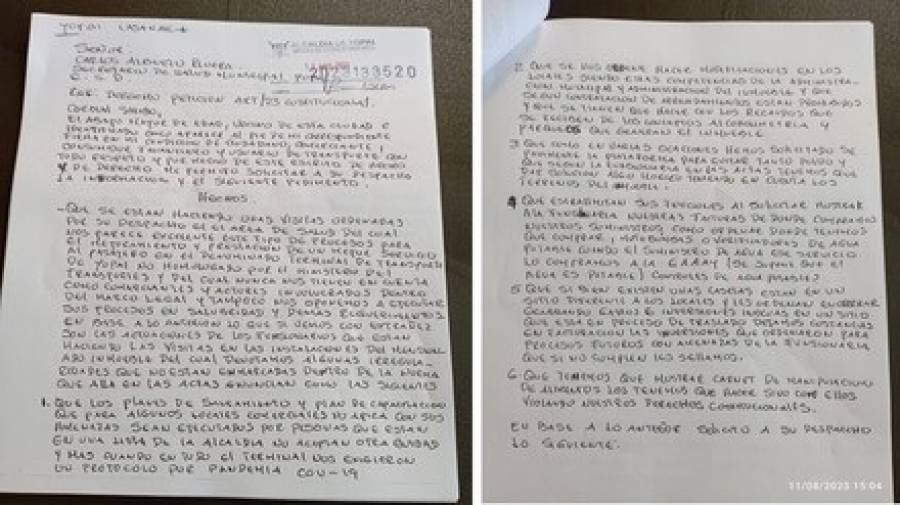 YOPAL CASANARE
SEÑOR:
CARLOS ALBERTO RIVERA
SECRETARIO DE SALUD MUNICIPAL YOPAL
E. S. D
ALCALDIA DE YOPAL
133520
REF: DERECHO PETICION ART/23 CONSTITUCIONAL.
CORDIAL SALUDO,
EL ABAJO MAYOR DE EDAD, VECINO DE ESTA CIUDAD E
IDENTIFICADO COMO APARECE AL PIE DE MI CORRESPONDIENTE
FIRMA EN MI CONDICION DE CIUDADANO, COMERCIANTE,
Y USUARIO DE TRANSPORTE CON
TODO RESPETO Y POR MEDIO DE ESTE ESCRITO DE HECHO
Y DE DERECHO ME PERMITO SOLICITAR A SU DESPACHO
LA INFORMACION Y EL SIGUIENTE PEDIMENTO.
HECHOS.
- QUE SE ESTAN HACIENDO UNAS VISITAS ORDENADAS
POR SU DESPACHO EN EL AREA DE SALUD DEL CUAL
NOS PARECE EXCELENTE ESTE TIPO DE PROCESOS PARA
EL MEJORAMIENTO Y PRESTACION DE UN MEJOR SERVICIO
AL PASAJERO EN EL DENOMINADO TERMINAL DE TRANSPORTE
DE YOPAL NO HOMOLOGADO POR EL MINISTERIO DEL
TRANSPORTES Y DEL CUAL NUNCA NOS TIENEN EN CUENTA
COMO COMERCIANTES Y ACTORES INVOLUCRADOS DENTRO
DEL MARCO LEGAL Y TAMPOCO NOS OPONEMOS A EJECUTAR
SUS PROCESOS EN SALUBRIDAD Y DEMAS REQUERIMIENTOS
EN BASE A LO ANTERIOR LO QUE SI VEMOS CON EXTRAÑEZ
SON LAS ACTUACIONES DE LOS FUNCIONARIOS QUE ESTAN
HACIENDO LAS VISITAS EN LAS INSTALACIONES DEL MENCION
ADO INMUEBLE DEL CUAL DENOTAMOS ALGUNAS IRREGULA
RIDADES QUE NO ESTAN ENMARCADAS DENTRO DE LA NORMA
QUE ARA EN LAS ACTAS ENUNCIAN COMO LAS SIGUIENTES
1. QUE LOS PLANES DE SANEAMIENTO Y PLAN DE CAPACITACION
QUE PARA ALGUNOS LOCALES COMERCIALES NO APLICA CON SUS
AMENAZAS SEAN EJECUTADOS POR PERSONAS QUE ESTAN
EN UNA LISTA DE LA ALCALDIA NO ACEPTAN OTRA ENTIDAD
Y MAS CUANDO EN TODO EL TERMINAL NOS EXIGIERON
UN PROTOCOLO POR PANDEMIA COV-19
2. QUE SE NOS ORDENE HACER MODIFICACIONES EN LOS
LOCALES SIENDO ESTAS COMPETENCIAS DE LA ADMINISTRA-
CION MUNICIPAL Y ADMINISTRACION DEL INMUEBLE Y QUE
SEGUN CONTRATACION DE ARRENDAMIENTOS ESTAN PROHIBIDOS
Y QUE SE TIENEN QUE HACER CON LOS RECAUDOS QUE
SE RECIBEN DE LOS CONCEPTOS ALCOHOLIMETRIA Y
PARQUEOS QUE GENERAN EL INMUEBLE
3. QUE COMO EN VARIAS OCACIONES HEMOS SOLICITADO SE
PAVIMENTE LA PLATAFORMA PARA EVITAR TANTO POLVO Y
QUE SEGUN LA FUNCIONARIA EN LAS ACTAS TENEMOS QUE
DAR SOLUCION ALGO ILOGICO TENIENDO EN CUENTA LOS
TERRENOS DEL INMUEBLE.
4. QUE EXTRALIMITAN SUS FUNCIONES AL SOLICITAR MOSTRAR
A LA FUNCIONARIA NUESTRAS FACTURAS DE DONDE COMPRAMOS
NUESTROS SUMINISTROS COMO ORDENAR DONDE TENEMOS
QUE COMPRAR, MOTOBOMBAS O VERIFICADORES DE AGUA
POTABLE CUANDO EL SUMINISTRO DE AGUA ESE SERVICIO
LO COMPRAMOS A LA EAAAY (SE SUPONE QUE EL
AGUA ES POTABLE) CONTROLES DE AGUA POTABLE?
5. QUE SI BIEN EXISTEN UNAS CASETAS ESTAN EN UN
SITIO DIFERENTE A LOS LOCALES Y LES OBLIGAN
GENERANDO GASTOS E INVERSIONES INOCUAS EN UN SITIO
QUE ESTA EN PROCESO DE TRASLADO DEJAMOS CONSTANCIAS
EN FACTURACION LAS INVERSIONES QUE ORDENARON PARA
PROCESOS FUTUROS CON AMENAZAS DE LA FUNCIONARIA
QUE SI NO CUMPLEN LES SELLAMOS.
6. QUE TENEMOS QUE MOSTRAR CARNET DE MANIPULACION
DE ALIMENTOS LOS TENEMOS QUE HACER SINO CON ELLOS
VIOLANDO NUESTROS DERECHOS CONSTITUCIONALES.
EN BASE A LO ANTERIOR SOLICITO A SU DESPACHO
LO SIGUIENTE:
11/08/2023 15:04